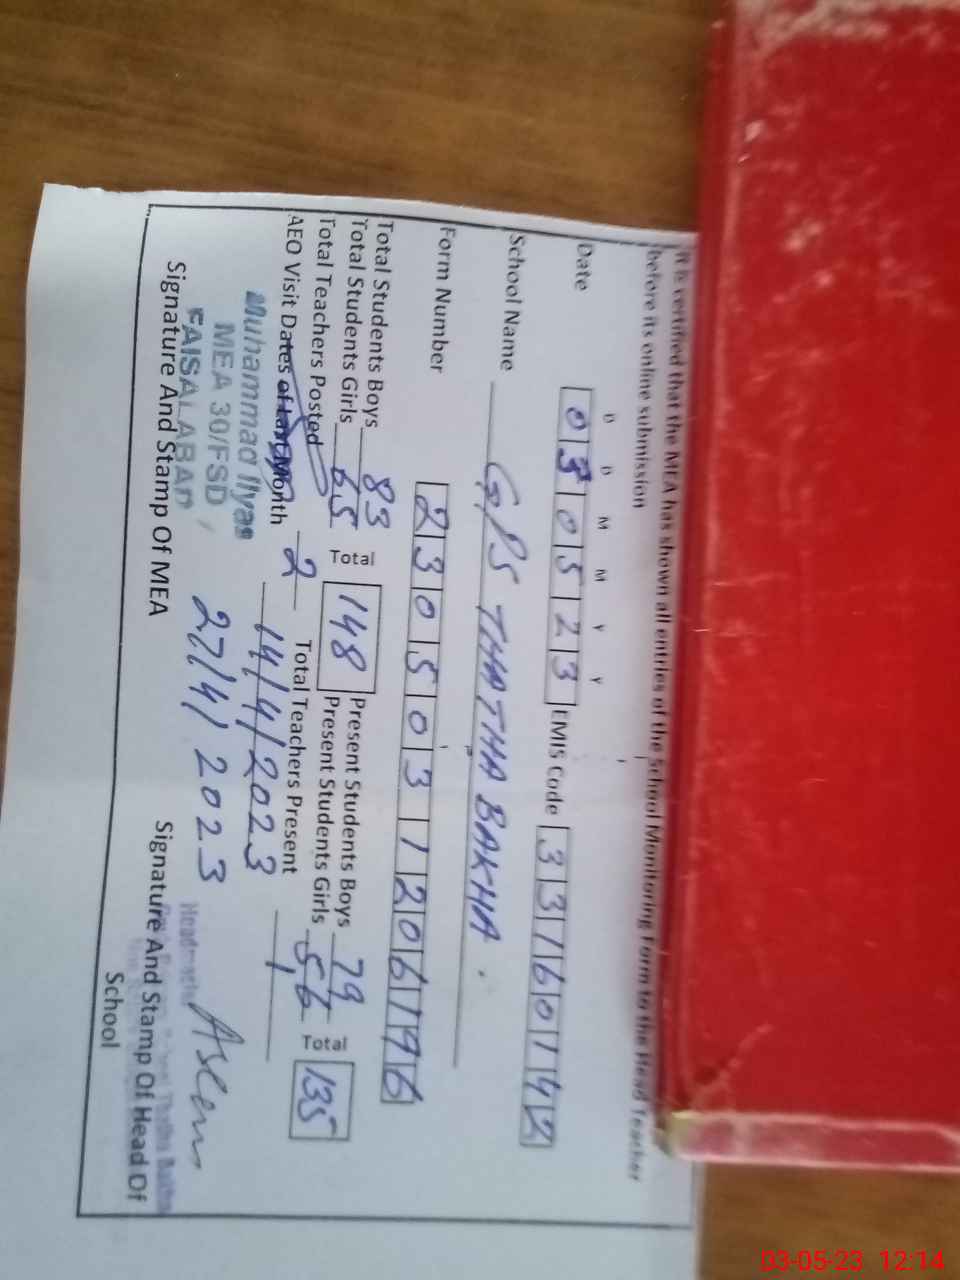 It is certified that the MEA has shown all entries of the School Monitoring Form to the Head Teacher
before its online submission
D D M M Y Y
Date 03 05 23 EMIS Code 33160142
School Name GPS THATHA BAKHA.
Form Number 2305031206196
Total Students Boys 83 Total 148 Present Students Boys 79 Total 135
Total Students Girls 65 Present Students Girls 56
Total Teachers Posted 2 Total Teachers Present 1
AEO Visit Dates of Last Month 14/4/2023
27/4/2023
Muhammad Ilyas
MEA 30/FSD,
FAISALABAD
Headmaster
Signature And Stamp Of MEA Signature And Stamp Of Head Of
School
03-05-23 12:14